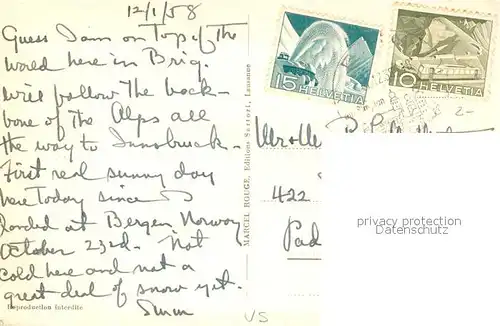 12/1/58
Guess I am on Top of the
world here in Brig.
will follow the back-
bone of the Alps all
the way to Innsbruck -
First real sunny day
here Today since I
landed at Bergen, Norway
October 23rd. Not
cold here and not a
great deal of snow yet.
Reproduction interdite
MARCEL ROUGE, Editions Sartori, Lausanne
15 HELVETIA
10 HELVETIA
2-
Mr & M
422
Pad
privacy protection
Datenschutz
VS